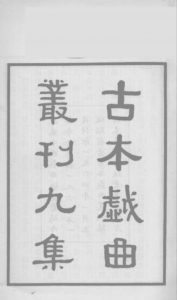 古本戯曲
叢刊九集